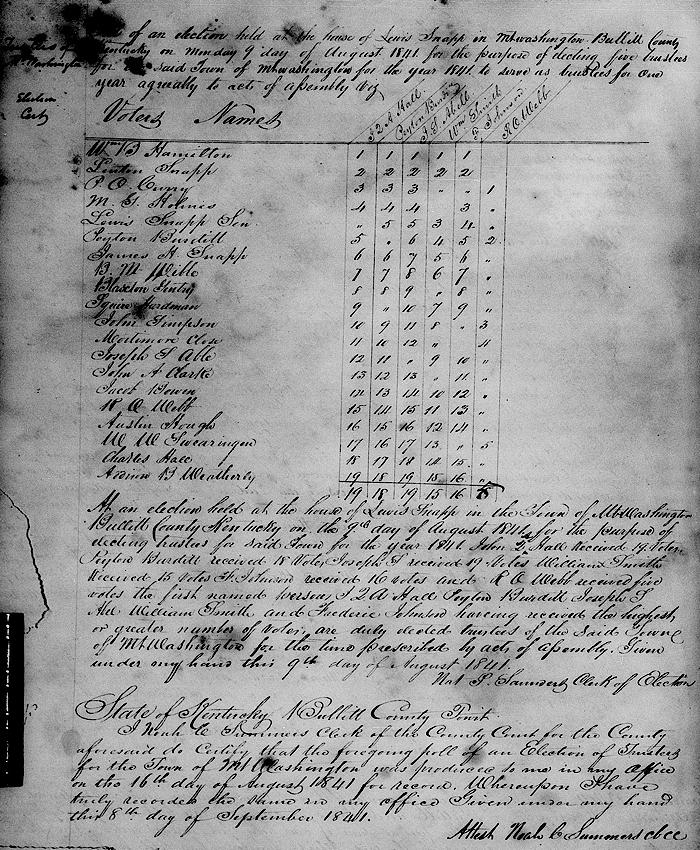 of an election held at the house of Lewis Snapp in Mtwashington Bullitt County
Kentucky on monday 9th day of August 1841 for the purpose of electing five trustees
for said Town of Mtwashington for the year 1841 to serve as trustees for one
year agreeably to acts of assembly viz
Trustees of
Mt Washington
Election
Cert
Voters Names
J Q A Hall
Peyton Burdill
J S Able
Wm Smith
F Johnson
R C Webb
Wm B Hamilton 1 1 1 1 1
Linton Snapp 2 2 2 2 2 "
P C Curry 3 3 3 " " 1
M. G. Holmes 4 4 4 3 "
Lewis Snapp Sen. " 5 5 3 4 "
Peyton Burdill 5 " 6 4 5 2
James H. Snapp 6 6 7 5 6 "
B. M Wible 7 7 8 6 7 "
Blaxton Gentry 8 8 9 " 8 "
Squire Hardman 9 " 10 7 9 "
John Simpson 10 9 11 8 " 3
Mortimore Close 11 10 12 " 4
Joseph S Able 12 11 " 9 10 "
John A Clarke 13 12 13 " 11 "
Jacob Bowen 14 13 14 10 12 "
R C Webb 15 14 15 11 13 "
Austin Hough 16 15 16 12 14 "
W W Swearingen 17 16 17 13 " 5
Charles Hall 18 17 18 14 15 "
B Weatherly 19 18 19 15 16 "
19 18 19 15 16 5
At an election held at the house of Lewis Snapp in the Town of MtWashington
Bullitt County Kentucky on the 9th day of August 1841 for the purpose of
electing trustees for said Town for the year 1841 John Q Hall Received 19 Votes
Peyton Burdill received 18 Votes Joseph S received 19 Votes William Smith
Received 15 Votes F. Johnson received 16 votes and R C Webb received five
votes the first named persons J Q A Hall Peyton Burdill Joseph S
Able William Smith and Frederic Johnson having received the highest
or greater number of votes, are duly elected trustees of the said Town
of MtWashington for the time prescribed by acts of assembly. Given
under my hand this 9th day of August 1841.
Nat P. Saunders Clerk of Election
State of Kentucky Bullitt County Court
I Noah C Summers Clerk of the County Court for the County
aforesaid do Certify that the foregoing poll of an Election of Trustees
for the Town of Mt Washington was produced to me in my office
on the 16th day of August 1841 for record. Whereupon I have
truly recorded the same in my office Given under my hand
this 8th day of September 1841.
Attest Noah C Summers cbcc